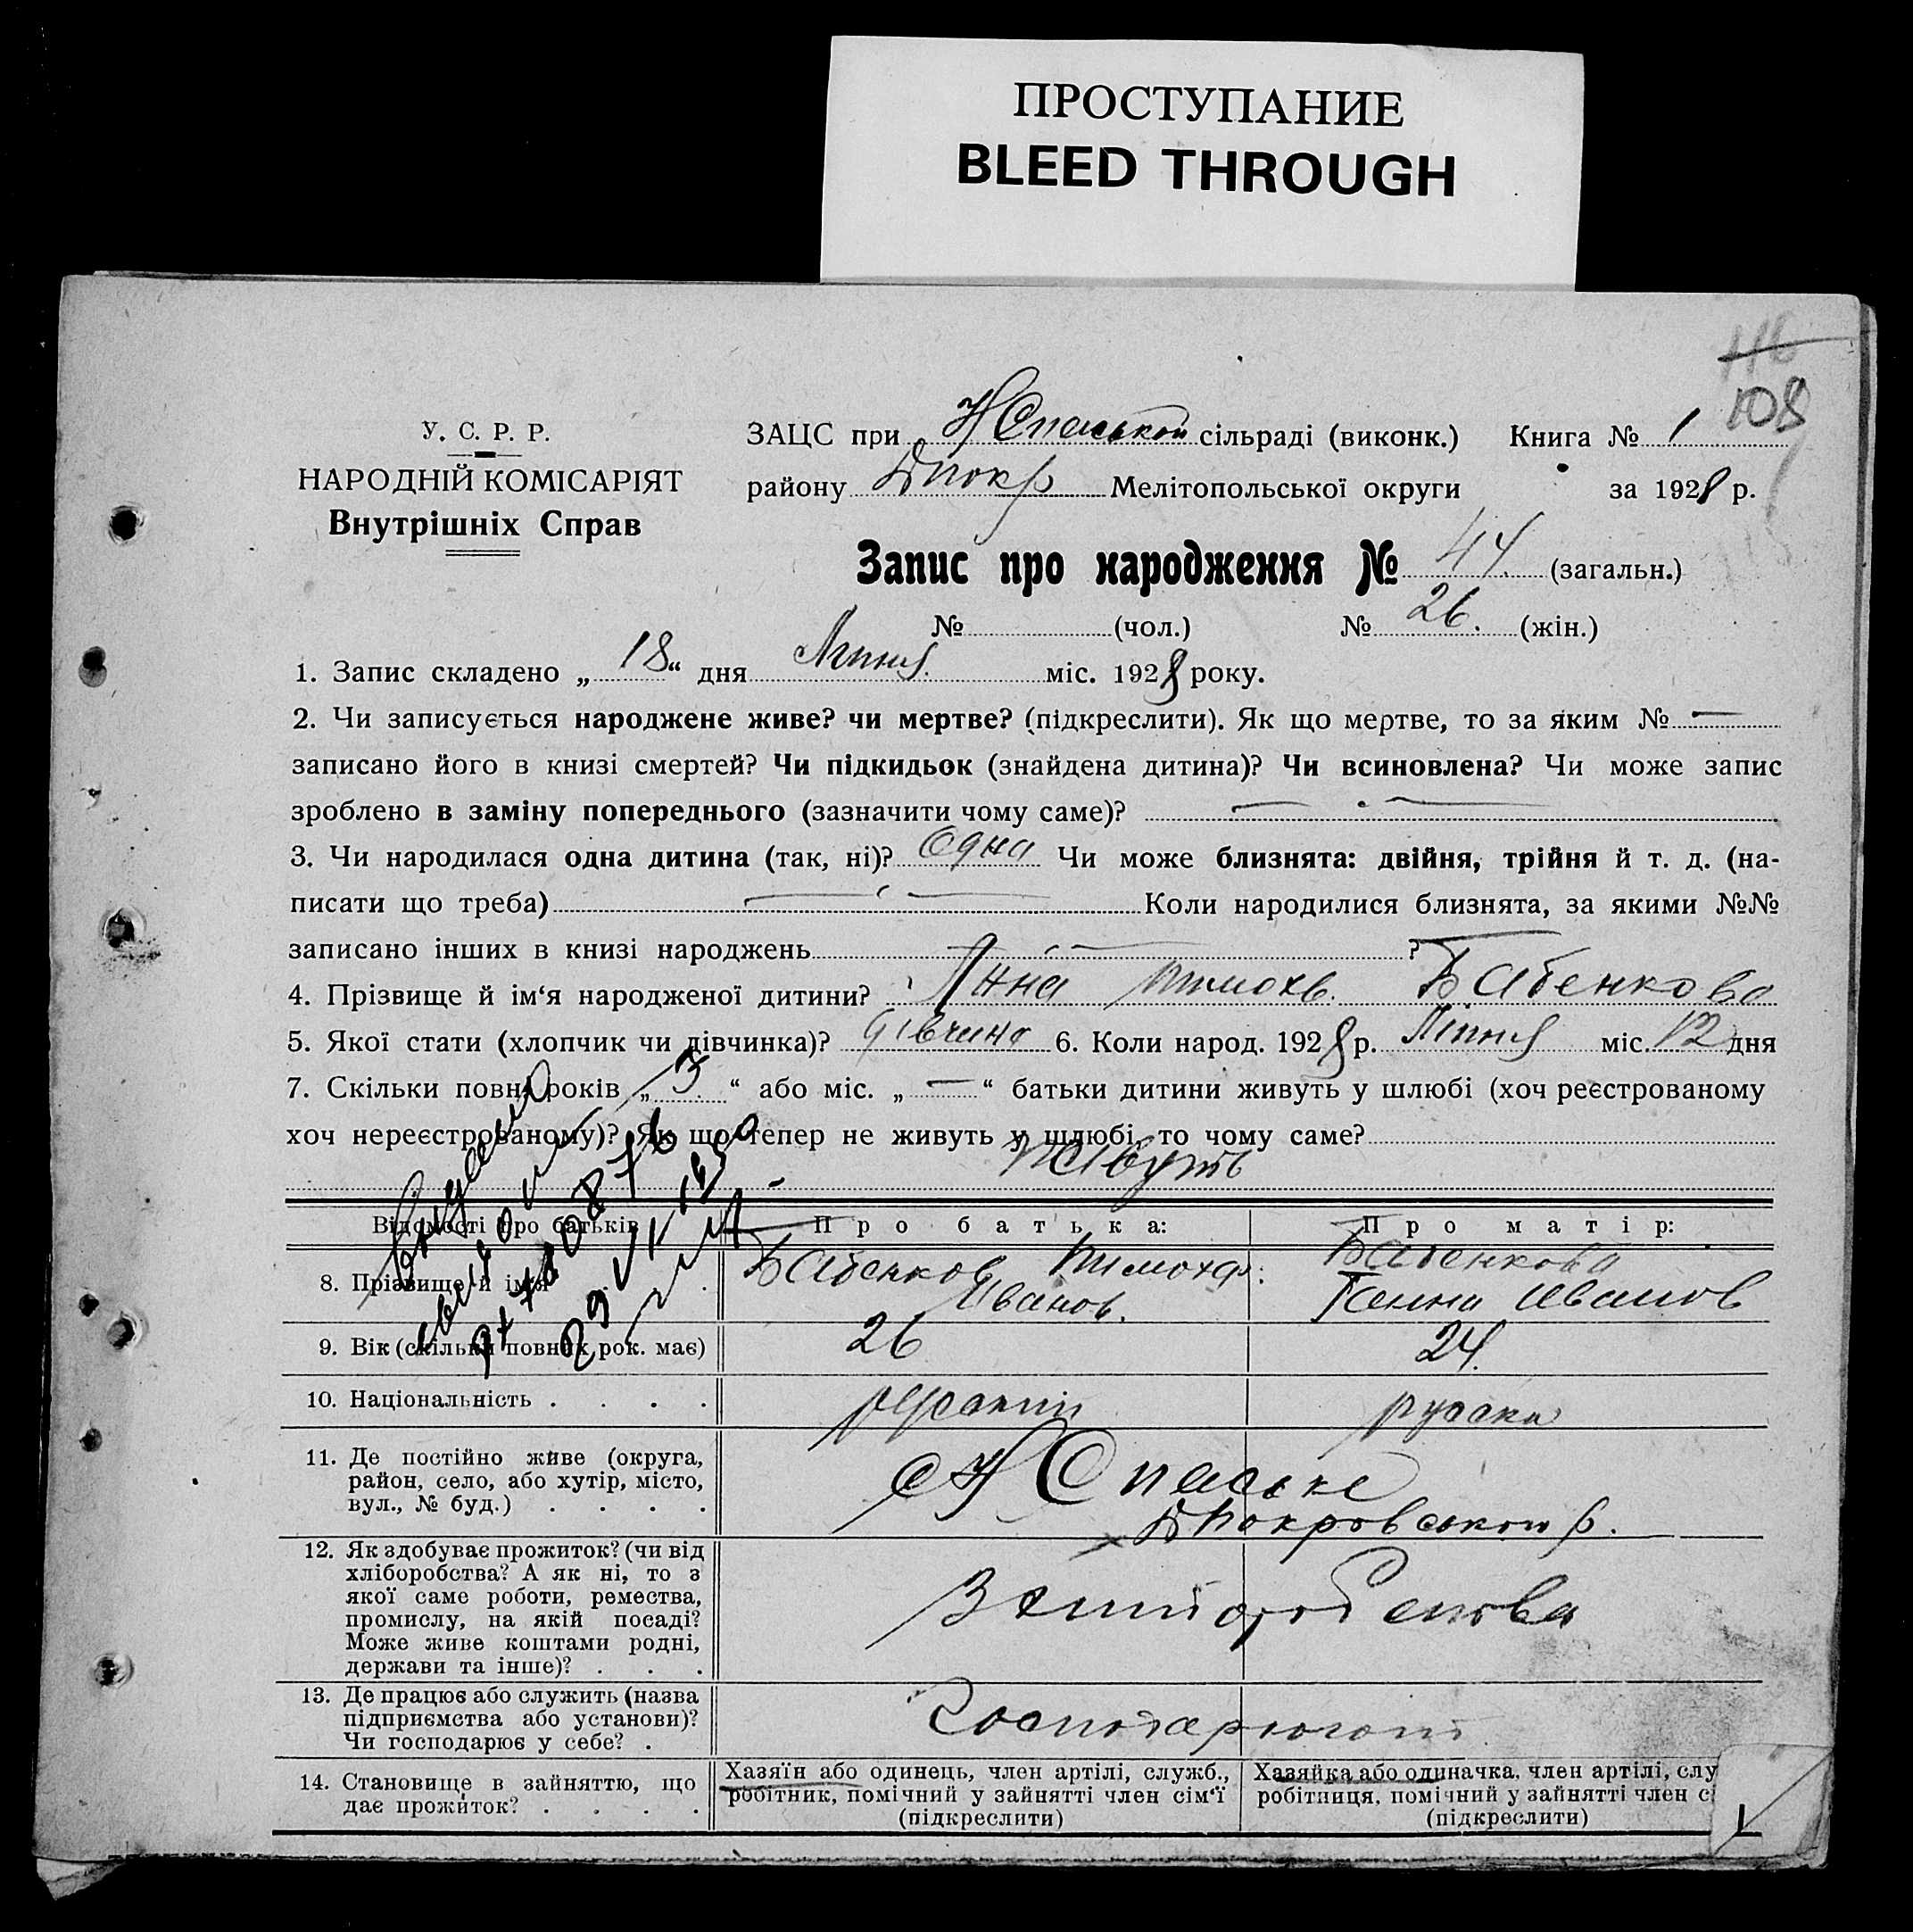 ПРОСТУПАНИЕ
BLEED THROUGH
116
108
У. С. Р. Р.
НАРОДНІЙ КОМІСАРІЯТ
Внутрішніх Справ
ЗАЦС при Н Спаськой сільраді (виконк.) Книга № 1
району Мелітопольської округи за 1928 р.
Запис про народження № 44. (загальн.)
№ (чол.) № 26. (жін.)
1. Запис складено „ 18 “ дня Липня міс. 1928 року.
2. Чи записується народжене живе? чи мертве? (підкреслити). Як що мертве, то за яким № —
записано його в книзі смертей? Чи підкидьок (знайдена дитина)? Чи всиновлена? Чи може запис
зроблено в заміну попереднього (зазначити чому саме)? — —
3. Чи народилася одна дитина (так, ні)? Одна Чи може близнята: двійня, трійня й т. д. (на-
писати що треба) — — Коли народилися близнята, за якими №№
записано інших в книзі народжень — — ?
4. Прізвище й ім‘я народженої дитини? Анна Тимохв. Бабенкова
5. Якої стати (хлопчик чи дівчинка)? дівчина 6. Коли народ. 1928 р. Липня міс. 12 дня
7. Скільки повни років „ 3 “ або міс. „ — “ батьки дитини живуть у шлюбі (хоч реєстрованому
хоч нереєстрованому)? Як що тепер не живуть у шлюбі, то чому саме?
Відомості про батьків Про батька: Про матір:
8. Прізвище й ім‘я Бабенков Тимохв. Иванов. Бабенкова Ганна Иванов
9. Вік (скільки повних рок. має) 26 24.
10. Національність . . . . руський руска
11. Де постійно живе (округа,
район, село, або хутір, місто,
вул., № буд.) . . . .
с Н Спаське
Покровського р.
12. Як здобуває прожиток? (чи від
хліборобства? А як ні, то з
якої саме роботи, ремества,
промислу, на якій посаді?
Може живе коштами родні,
держави та інше)? . . .
13. Де працює або служить (назва
підприємства або установи)?
Чи господарює у себе? .
Господарюють
14. Становище в зайняттю, що
дає прожиток? . . . .
Хазяїн або одинець, член артілі, служб.,
робітник, помічний у зайнятті член сім‘ї
(підкреслити)
Хазяйка або одиначка, член артілі, слу
робітниця, помічний у зайнятті член с
(підкреслити)